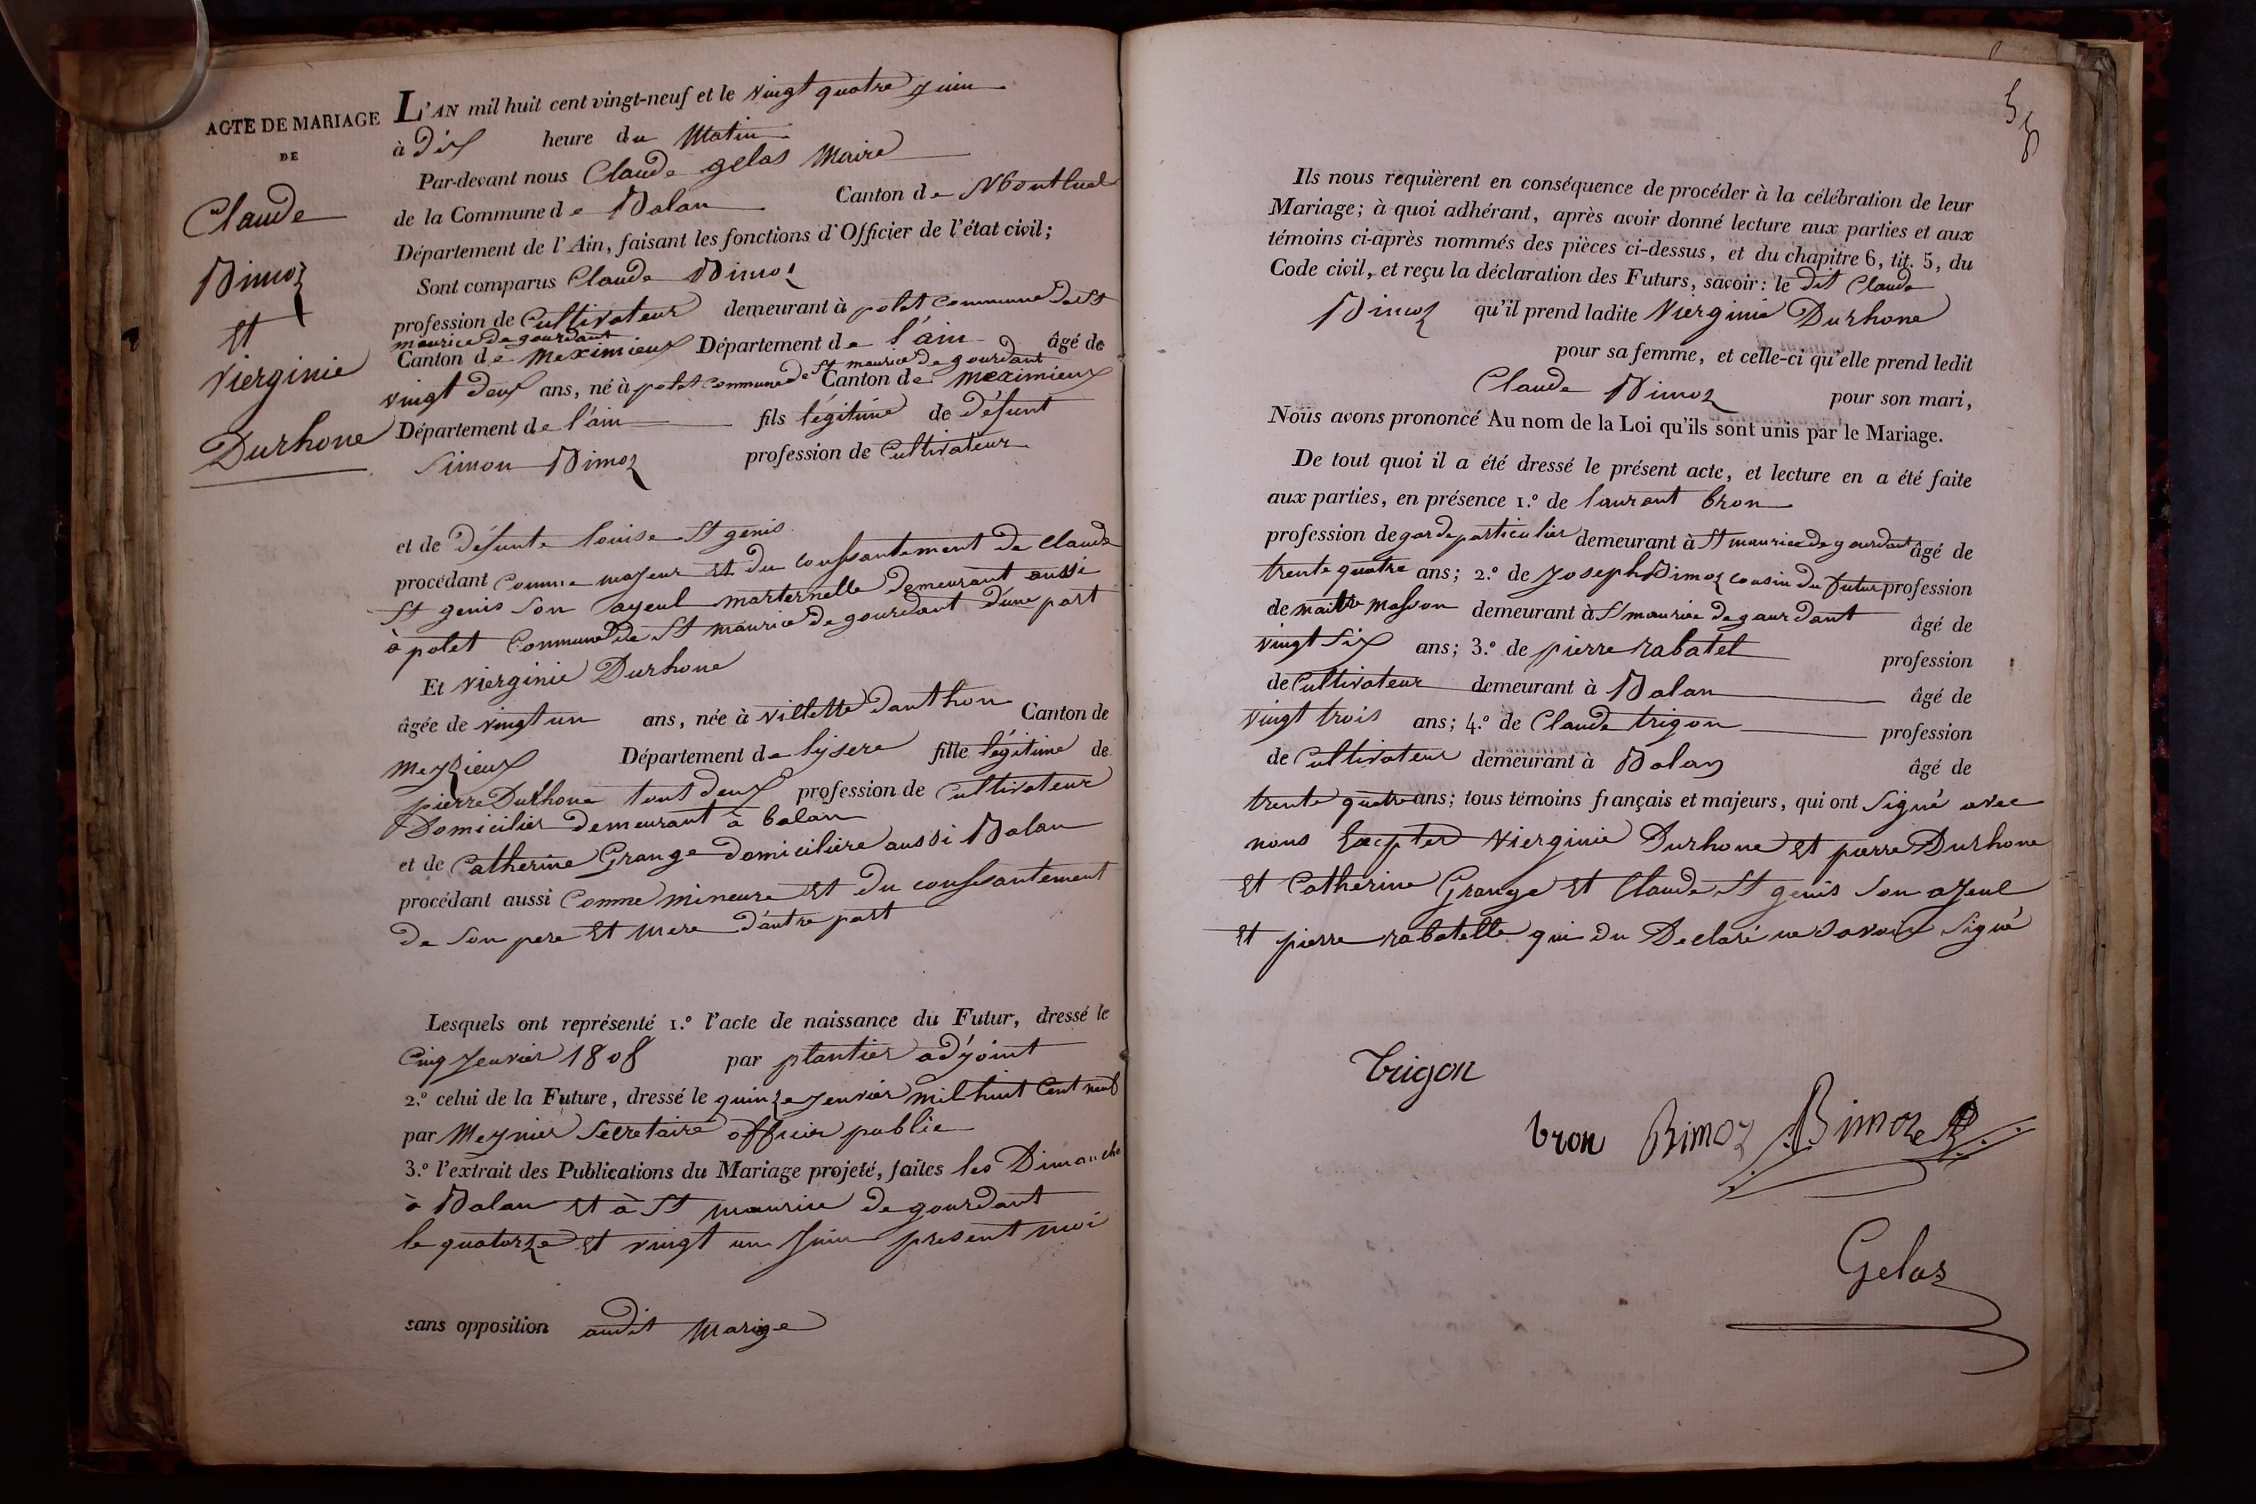 ACTE DE MARIAGE
DE
Claude
Bimoz
et
Vierginie
Durhone
L'AN mil huit cent vingt-neuf et le vingt quatre juin
à dix heure du Matin
Par-devant nous Claude gelas Maire
de la Commune de Balan Canton de Montluel
Département de l'Ain, faisant les fonctions d'Officier de l'état civil;
Sont comparus Claude Bimoz
profession de Cultivateur demeurant à polet commune de St
maurice de gourdant
Canton de Meximieux Département de l'ain âgé de
vingt deux ans, né à polet commune de St maurice de gourdant Canton de Meximieux
Département de l'ain fils légitime de défunt
Simon Bimoz profession de Cultivateur
et de défunte louise St genis
procédant comme majeur et du conssantement de Claude
St genis son ayeul marternelle demeurant aussi
à polet Commune de St maurice de gourdant d'une part
Et Vierginie Durhone
âgée de vingt un ans, née à Villette danthon Canton de
Meyzieux Département de lysere fille légitime de
pierre Durhone tout deux profession de Cultivateur
Domicilier demeurant à balan
et de Catherine Grange domicilière aussi Balan
procédant aussi Comme mineure et du conssantement
de son pere et mere d'autre part
Lesquels ont représenté 1.º l'acte de naissance du Futur, dressé le
Cinq Jenvier 1808 par plantier adjoint
2.º celui de la Future, dressé le quinze Jenvier mil huit Cent neuf
par Meynier Secretaire officier public
3.º l'extrait des Publications du Mariage projeté, faites les Dimanche
à Balan et à St maurice de gourdant
le quatorze et vingt un Juin present moi
sans opposition audit Mariage
58
Ils nous requièrent en conséquence de procéder à la célébration de leur
Mariage; à quoi adhérant, après avoir donné lecture aux parties et aux
témoins ci-après nommés des pièces ci-dessus, et du chapitre 6, tit. 5, du
Code civil, et reçu la déclaration des Futurs, savoir: le dit Claude
Bimoz qu'il prend ladite Vierginie Durhone
pour sa femme, et celle-ci qu'elle prend ledit
Claude Bimoz pour son mari,
Nous avons prononcé Au nom de la Loi qu'ils sont unis par le Mariage.
De tout quoi il a été dressé le présent acte, et lecture en a été faite
aux parties, en présence 1.º de laurent bron
profession de garde particulier demeurant à St maurice de gourdant âgé de
trente quatre ans; 2.º de Joseph Bimoz cousin du futur profession
de maitre Masson demeurant à St maurice de gaurdant âgé de
vingt Six ans; 3.º de pierre rabatel profession
de Cultivateur demeurant à Balan âgé de
vingt trois ans; 4.º de Claude trigon profession
de Cultivateur demeurant à Balan âgé de
trente quatre ans; tous témoins français et majeurs, qui ont Signé avec
nous Excpter Vierginie Durhone et pierre Durhone
et Catherine Grange et Claude St genis son ayeul
et pierre rabatelle qui du Declaré ne savoir Signé
Trigon
bron Bimoz Bimoz
Gelas